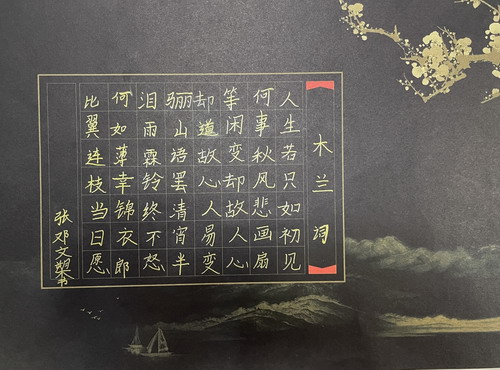 木兰词
人生若只如初见
何事秋风悲画扇
等闲变却故人心
却道故心人易变
骊山语罢清宵半
泪雨霖铃终不怨
何如薄幸锦衣郎
比翼连枝当日愿
张邓文书